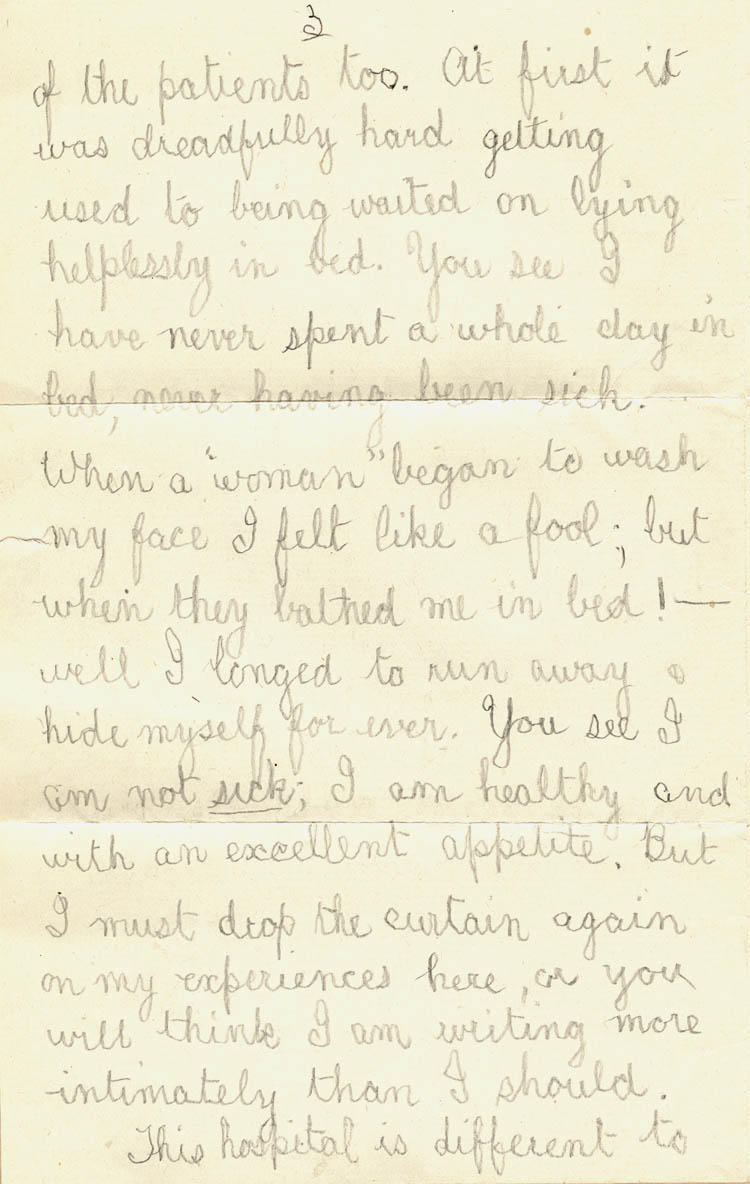 3
of the patients too. At first it
was dreadfully hard getting
used to being waited on lying
helplessly in bed. You see I
have never spent a whole day in
bed, never having been sick.
When a "woman" began to wash
my face I felt like a fool; but
when they bathed me in bed! —
well I longed to run away &
hide myself for ever. You see I
am not sick; I am healthy and
with an excellent appetite. But
I must drop the curtain again
on my experiences here, or you
will think I am writing more
intimately than I should.
This hospital is different to